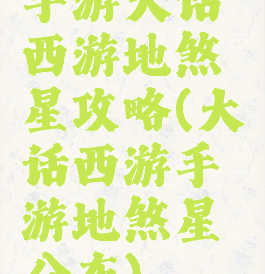 手游大话
西游地煞
星攻略(大
话西游手
游地煞星
分布)